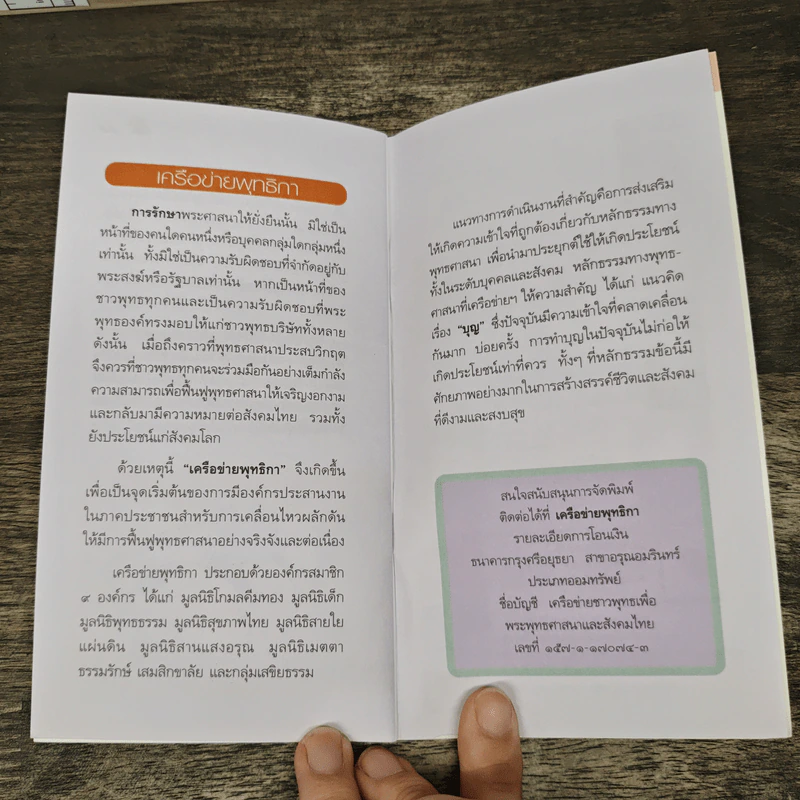 เครือข่ายพุทธิกา
การรักษาพระศาสนาให้ยั่งยืนนั้น มิใช่เป็น
หน้าที่ของคนใดคนหนึ่งหรือบุคคลกลุ่มใดกลุ่มหนึ่ง
เท่านั้น ทั้งมิใช่เป็นความรับผิดชอบที่จำกัดอยู่กับ
พระสงฆ์หรือรัฐบาลเท่านั้น หากเป็นหน้าที่ของ
ชาวพุทธทุกคนและเป็นความรับผิดชอบที่พระ
พุทธองค์ทรงมอบให้แก่ชาวพุทธบริษัททั้งหลาย
ดังนั้น เมื่อถึงคราวที่พุทธศาสนาประสบวิกฤต
จึงควรที่ชาวพุทธทุกคนจะร่วมมือกันอย่างเต็มกำลัง
ความสามารถเพื่อฟื้นฟูพุทธศาสนาให้เจริญงอกงาม
และกลับมามีความหมายต่อสังคมไทย รวมทั้ง
ยังประโยชน์แก่สังคมโลก
ด้วยเหตุนี้ “เครือข่ายพุทธิกา” จึงเกิดขึ้น
เพื่อเป็นจุดเริ่มต้นของการมีองค์กรประสานงาน
ในภาคประชาชนสำหรับการเคลื่อนไหวผลักดัน
ให้มีการฟื้นฟูพุทธศาสนาอย่างจริงจังและต่อเนื่อง
เครือข่ายพุทธิกา ประกอบด้วยองค์กรสมาชิก
๙ องค์กร ได้แก่ มูลนิธิโกมลคีมทอง มูลนิธิเด็ก
มูลนิธิพุทธธรรม มูลนิธิสุขภาพไทย มูลนิธิสายใย
แผ่นดิน มูลนิธิสานแสงอรุณ มูลนิธิเมตตา
ธรรมรักษ์ เสมสิกขาลัย และกลุ่มเสขิยธรรม
แนวทางการดำเนินงานที่สำคัญคือการส่งเสริม
ให้เกิดความเข้าใจที่ถูกต้องเกี่ยวกับหลักธรรมทาง
พุทธศาสนา เพื่อนำมาประยุกต์ใช้ให้เกิดประโยชน์
ทั้งในระดับบุคคลและสังคม หลักธรรมทางพุทธ-
ศาสนาที่เครือข่ายฯ ให้ความสำคัญ ได้แก่ แนวคิด
เรื่อง “บุญ” ซึ่งปัจจุบันมีความเข้าใจที่คลาดเคลื่อน
กันมาก บ่อยครั้ง การทำบุญในปัจจุบันไม่ก่อให้
เกิดประโยชน์เท่าที่ควร ทั้งๆ ที่หลักธรรมข้อนี้มี
ศักยภาพอย่างมากในการสร้างสรรค์ชีวิตและสังคม
ที่ดีงามและสงบสุข
สนใจสนับสนุนการจัดพิมพ์
ติดต่อได้ที่ เครือข่ายพุทธิกา
รายละเอียดการโอนเงิน
ธนาคารกรุงศรีอยุธยา สาขาอรุณอมรินทร์
ประเภทออมทรัพย์
ชื่อบัญชี เครือข่ายชาวพุทธเพื่อ
พระพุทธศาสนาและสังคมไทย
เลขที่ ๑๕๗-๑-๑๗๐๗๔-๓